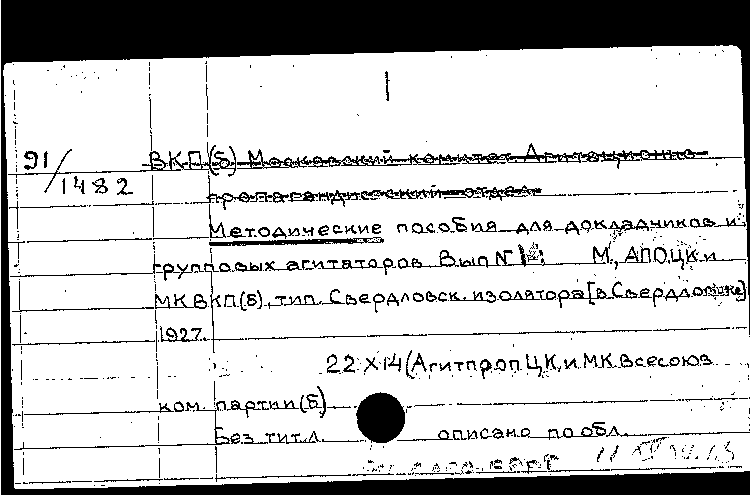 91/1482 ВКП(б) Московский комитет Агитационно-
пропагандистский отдел.
Методические пособия для докладчиков и
групповых агитаторов. Вып № 1 М., АПО ЦК и
МК ВКП(б), тип. Свердловск. изолятора [в Свердловске]
1927.
22×14 (Агитпроп ЦК и МК Всесоюз
ком. партии (б).
Без тит. л. описано по обл.